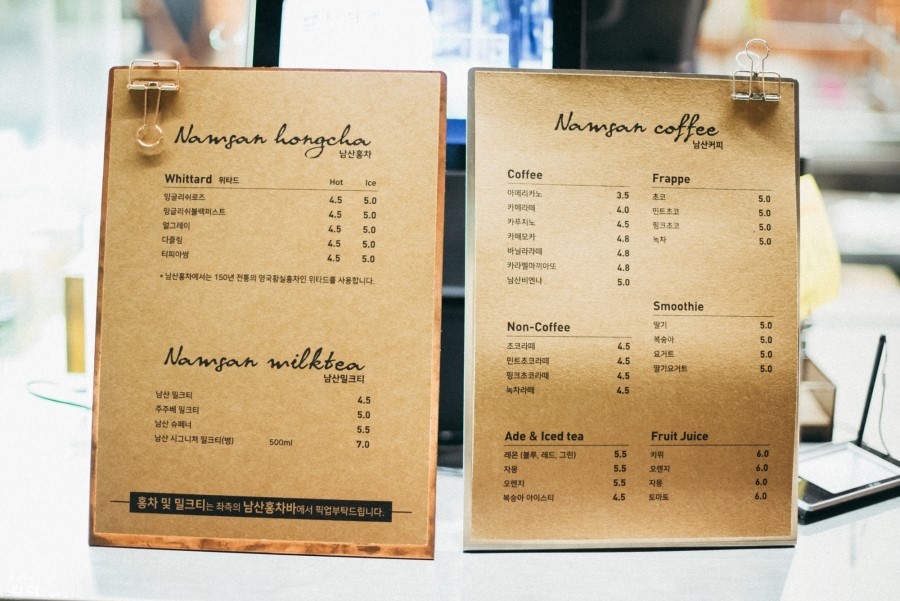 Namsan hongcha
남산홍차
Whittard 위타드 Hot Ice
잉글리쉬로즈 4.5 5.0
잉글리쉬블랙퍼스트 4.5 5.0
얼그레이 4.5 5.0
다즐링 4.5 5.0
티피아쌈 4.5 5.0
• 남산홍차에서는 150년 전통의 영국황실홍차인 위타드를 사용합니다.
Namsan milktea
남산밀크티
남산 밀크티 4.5
주주베 밀크티 5.0
남산 슈페너 5.5
남산 시그니쳐 밀크티(병) 500ml 7.0
홍차 및 밀크티는 좌측의 남산홍차바에서 픽업부탁드립니다.
Namsan coffee
남산커피
Coffee
아메리카노 3.5
카페라떼 4.0
카푸치노 4.5
카페모카 4.8
바닐라라떼 4.8
카라멜마끼아또 4.8
남산비엔나 5.0
Non-Coffee
초코라떼 4.5
민트초코라떼 4.5
핑크초코라떼 4.5
녹차라떼 4.5
Ade & Iced tea
레몬 (블루, 레드, 그린) 5.5
자몽 5.5
오렌지 5.5
복숭아 아이스티 4.5
Frappe
초코 5.0
민트초코 5.0
핑크초코 5.0
녹차 5.0
Smoothie
딸기 5.0
복숭아 5.0
요거트 5.0
딸기요거트 5.0
Fruit Juice
키위 6.0
오렌지 6.0
자몽 6.0
토마토 6.0